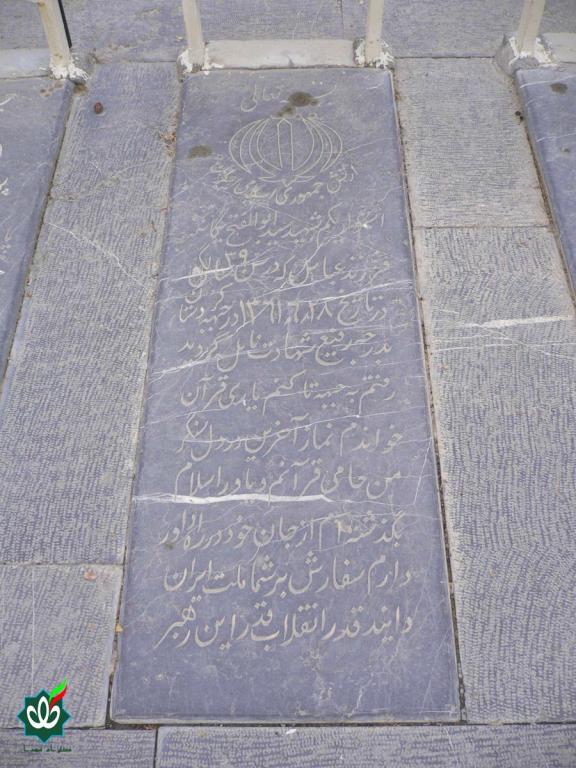 بسمه تعالی
ارتش جمهوری اسلامی ایران
استوار یکم شهید سید ابوالفتح
فرزند عباس که در سن ۳۹ سالگی
در تاریخ ۱۳۶۱/۸/۱۸ در جبهه
بدرجه رفیع شهادت نایل گردید
رفتم به جبهه تا کنم یاری قرآن
خواندم نماز آخرین در دل سنگر
من حامی قرآنم و یاور اسلام
بگذشته‌ام از جان خود در راه داور
دارم سفارش بر شما ملت ایران
دانید قدر انقلاب قدر این رهبر